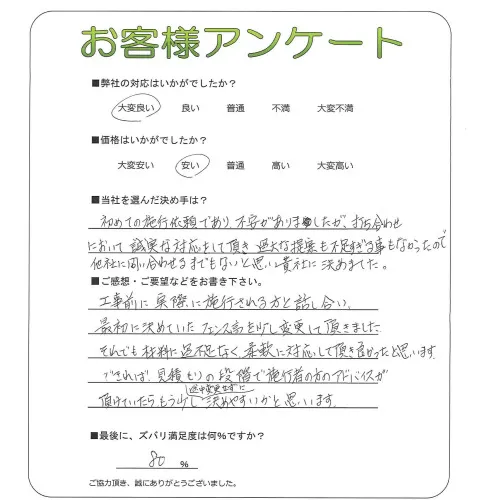 お客様アンケート
■弊社の対応はいかがでしたか?
大変良い 良い 普通 不満 大変不満
■価格はいかがでしたか?
大変安い 安い 普通 高い 大変高い
■当社を選んだ決め手は?
初めての施行依頼であり、不安がありましたが、打ち合わせ
において 誠実な対応をして頂き 過大な提案も不足すぎる事もなかったので
他社に問い合わせるまでもないと思い貴社に決めました。
■ご感想・ご要望などをお書き下さい。
工事前に実際に施行される方と話し合い、
最初に決めていたフェンス高を少し変更して頂きました
それでも材料に過不足なく、柔軟に対応して頂き良かったと思います
できれば、見積もりの段階で施行者の方のアドバイスが
途中変更せずに
頂けていたらもう少し決めやすいかと思います。
■最後に、ズバリ満足度は何%ですか?
80 %
ご協力頂き、誠にありがとうございました。